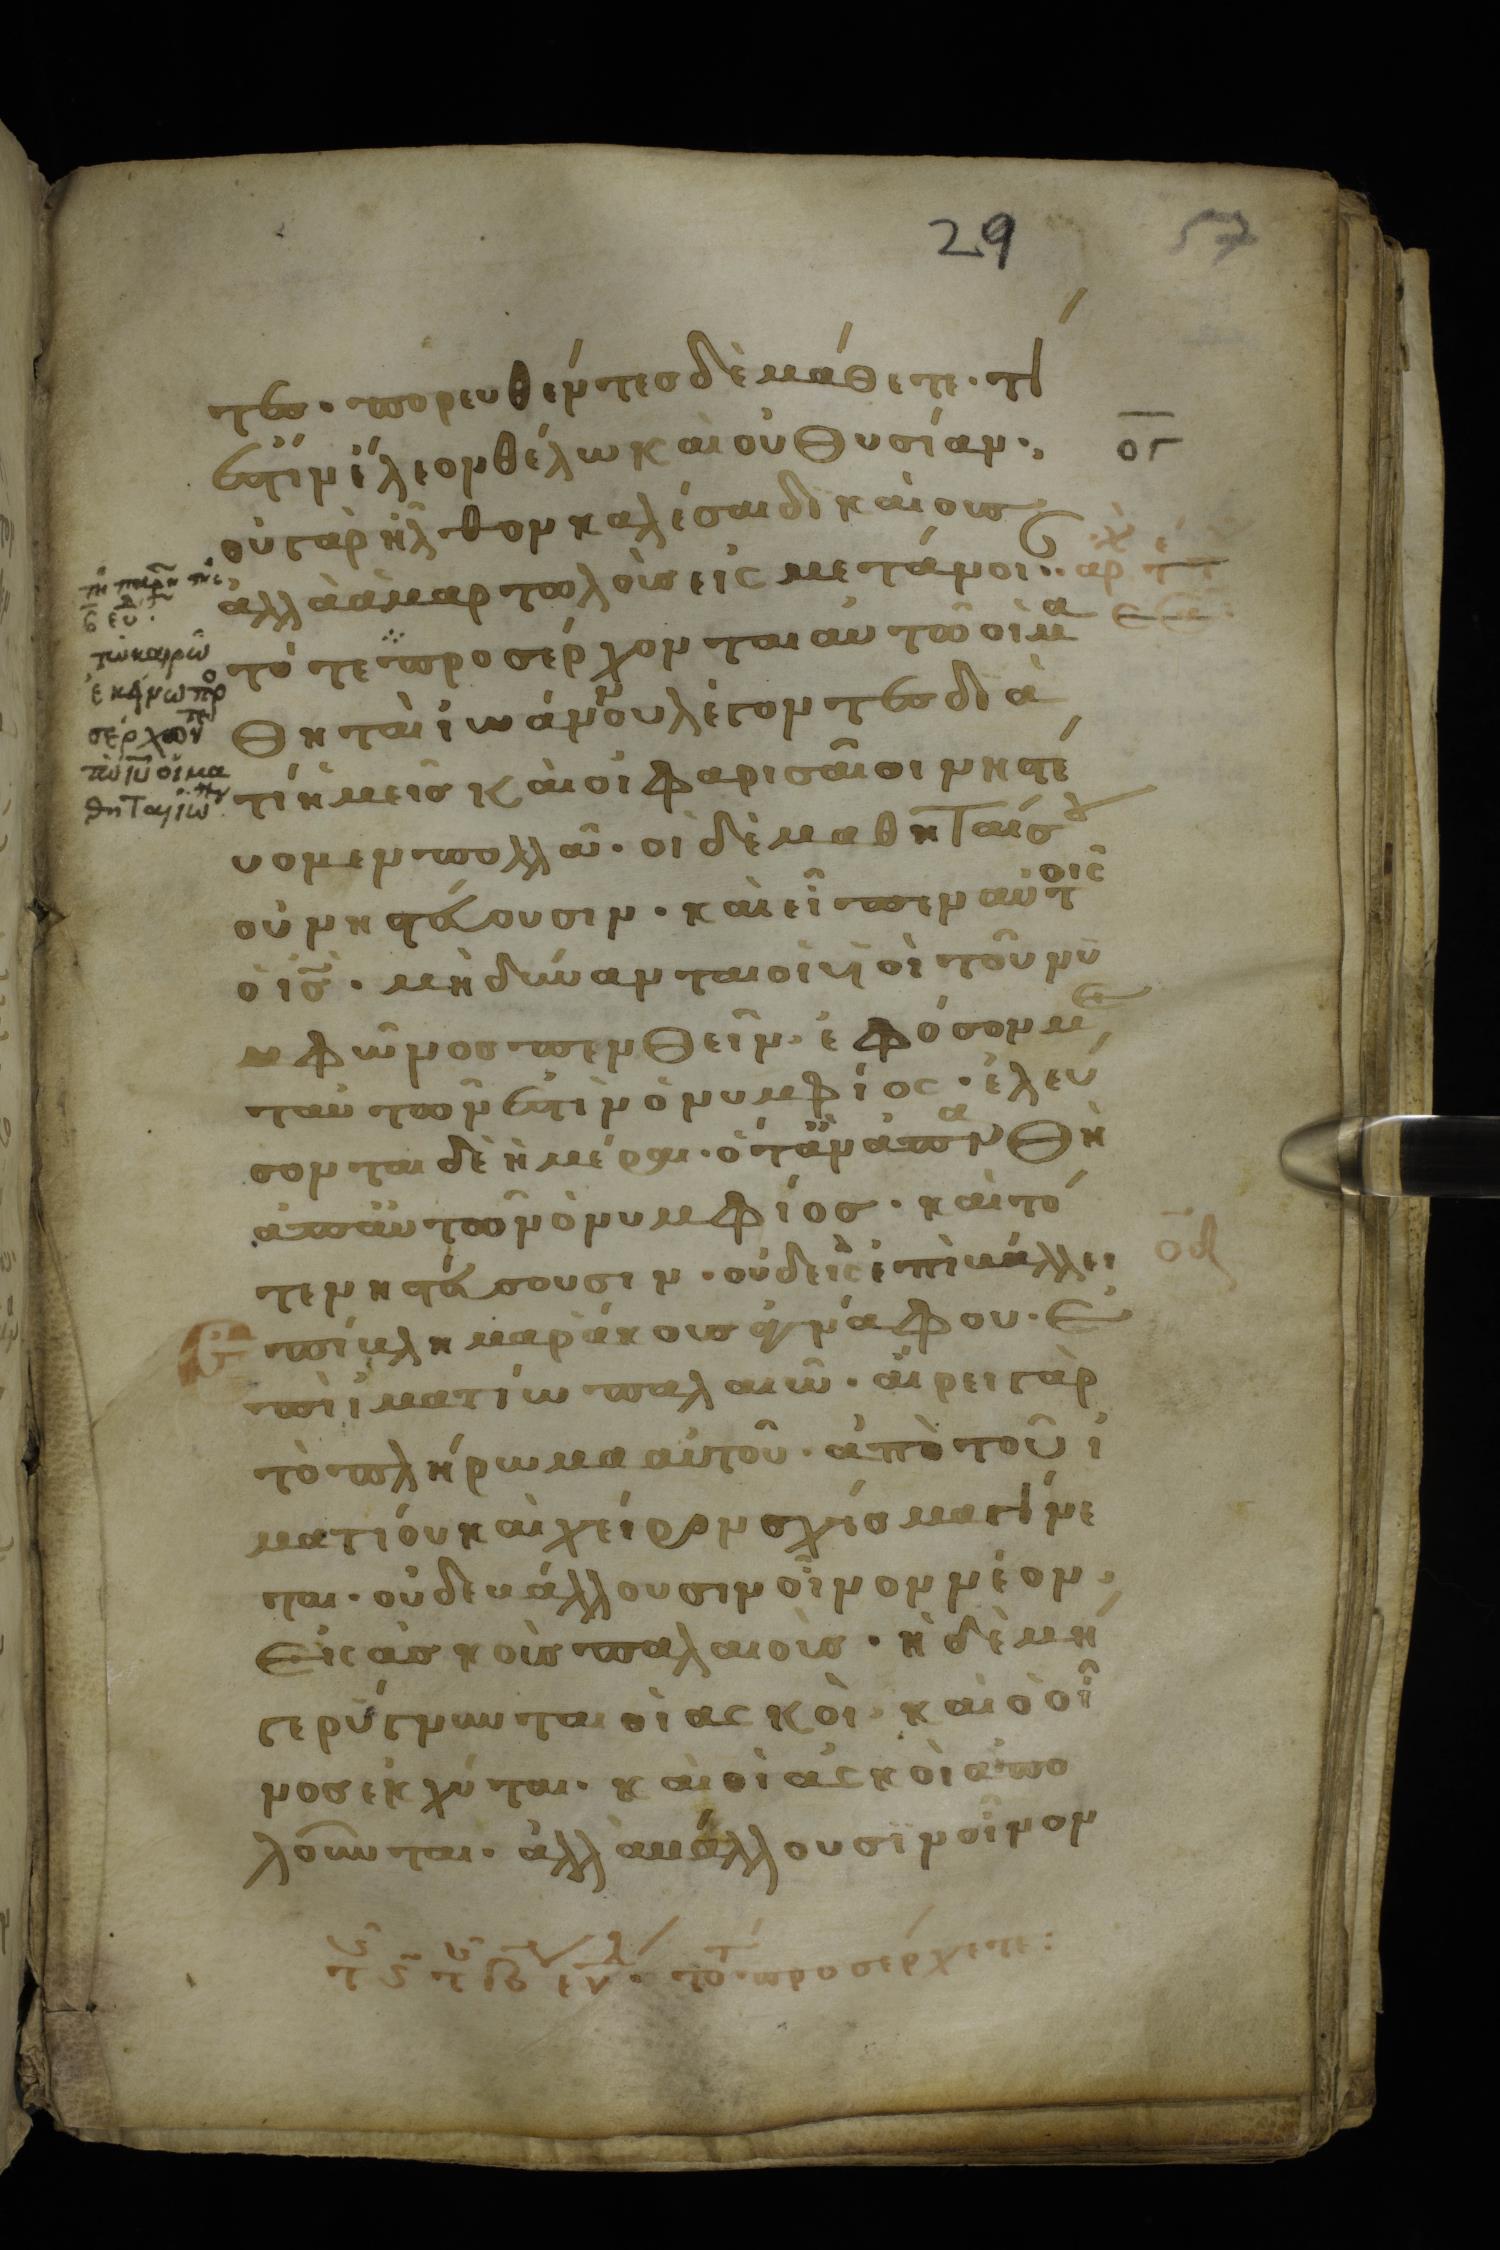 29 57
τες · πορευθέντες δὲ μάθετε · τί
ἐστὶν ἔλεον θέλω καὶ οὐ θυσίαν ·
ογ
οὐ γὰρ ἦλθον καλέσαι δικαίους
ἀλλὰ ἁμαρτωλοὺς εἰς μετάνοι
τότε προσέρχονται αὐτῶ οἱ μα
θηταὶ ἰωάννου λέγοντες διὰ
τί ἡμεῖς καὶ οἱ φαρισαῖοι νηστεύ
ομεν πολλά · οἱ δὲ μαθηταί σου
οὐ νηστεύουσιν · καὶ εἶπεν αὐτοῖς
ὁ ις · μὴ δύνανται οἱ υἱοὶ τοῦ νυ
μφῶνος πενθεῖν · ἐφ όσον με
τ αὐτῶν ἐστὶν ὁ νυμφίος · ἐλεύ
σονται δὲ ἡμέραι · ὅταν ἀπαρθῆ
ἀπ αὐτῶν ὁ νυμφίος · καὶ τό
τε νηστεύσουσιν · οὐδεὶς ἐπιβάλλει
οδ
ἐπίβλημα ράκους ἀγνάφου · ἐ
πὶ ἱματίω παλαιῶ · αἴρει γὰρ
τὸ πλήρωμα αὐτοῦ · ἀπὸ τοῦ ἱ
ματίου καὶ χεῖρον σχίσμα γίνε
ται · οὐδε βάλλουσιν οἶνον νέον
εἰς ἀσκοὺς παλαιούς · ἠ δὲ μή
γε ρύγνυνται οἱ ασκοὶ · καὶ ὁ οἶ
νος ἐκχύται · καὶ οἱ ἀσκοὶ ἀπο
λοῦνται · ἀλλὰ βάλλουσιν οἶνον
τῶ καιρῶ
ἐκείνω προ
σέρχον
τω ιυ οἱ μα
θηταὶ ἰω
προσέρχετε :